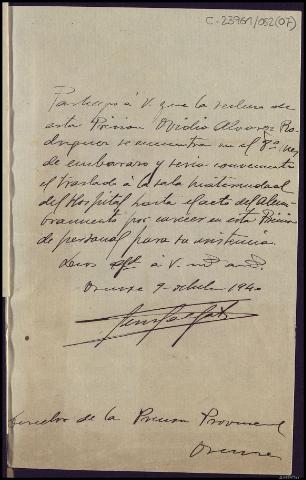 C-23961/052(07)
Participo á V. que la reclusa de
esta Prision Ovidia Alvarez Ro-
driguez se encuentra en el 8º mes
de embarazo y seria conveniente
el traslado á la sala maternidad
del Hospital hasta el acto del alum-
bramiento por carecer en esta Prision
de personal para su asistencia.
Dios gde á V. m a.
Orense 9 octubre 1940
Director de la Prision Provincial
Orense